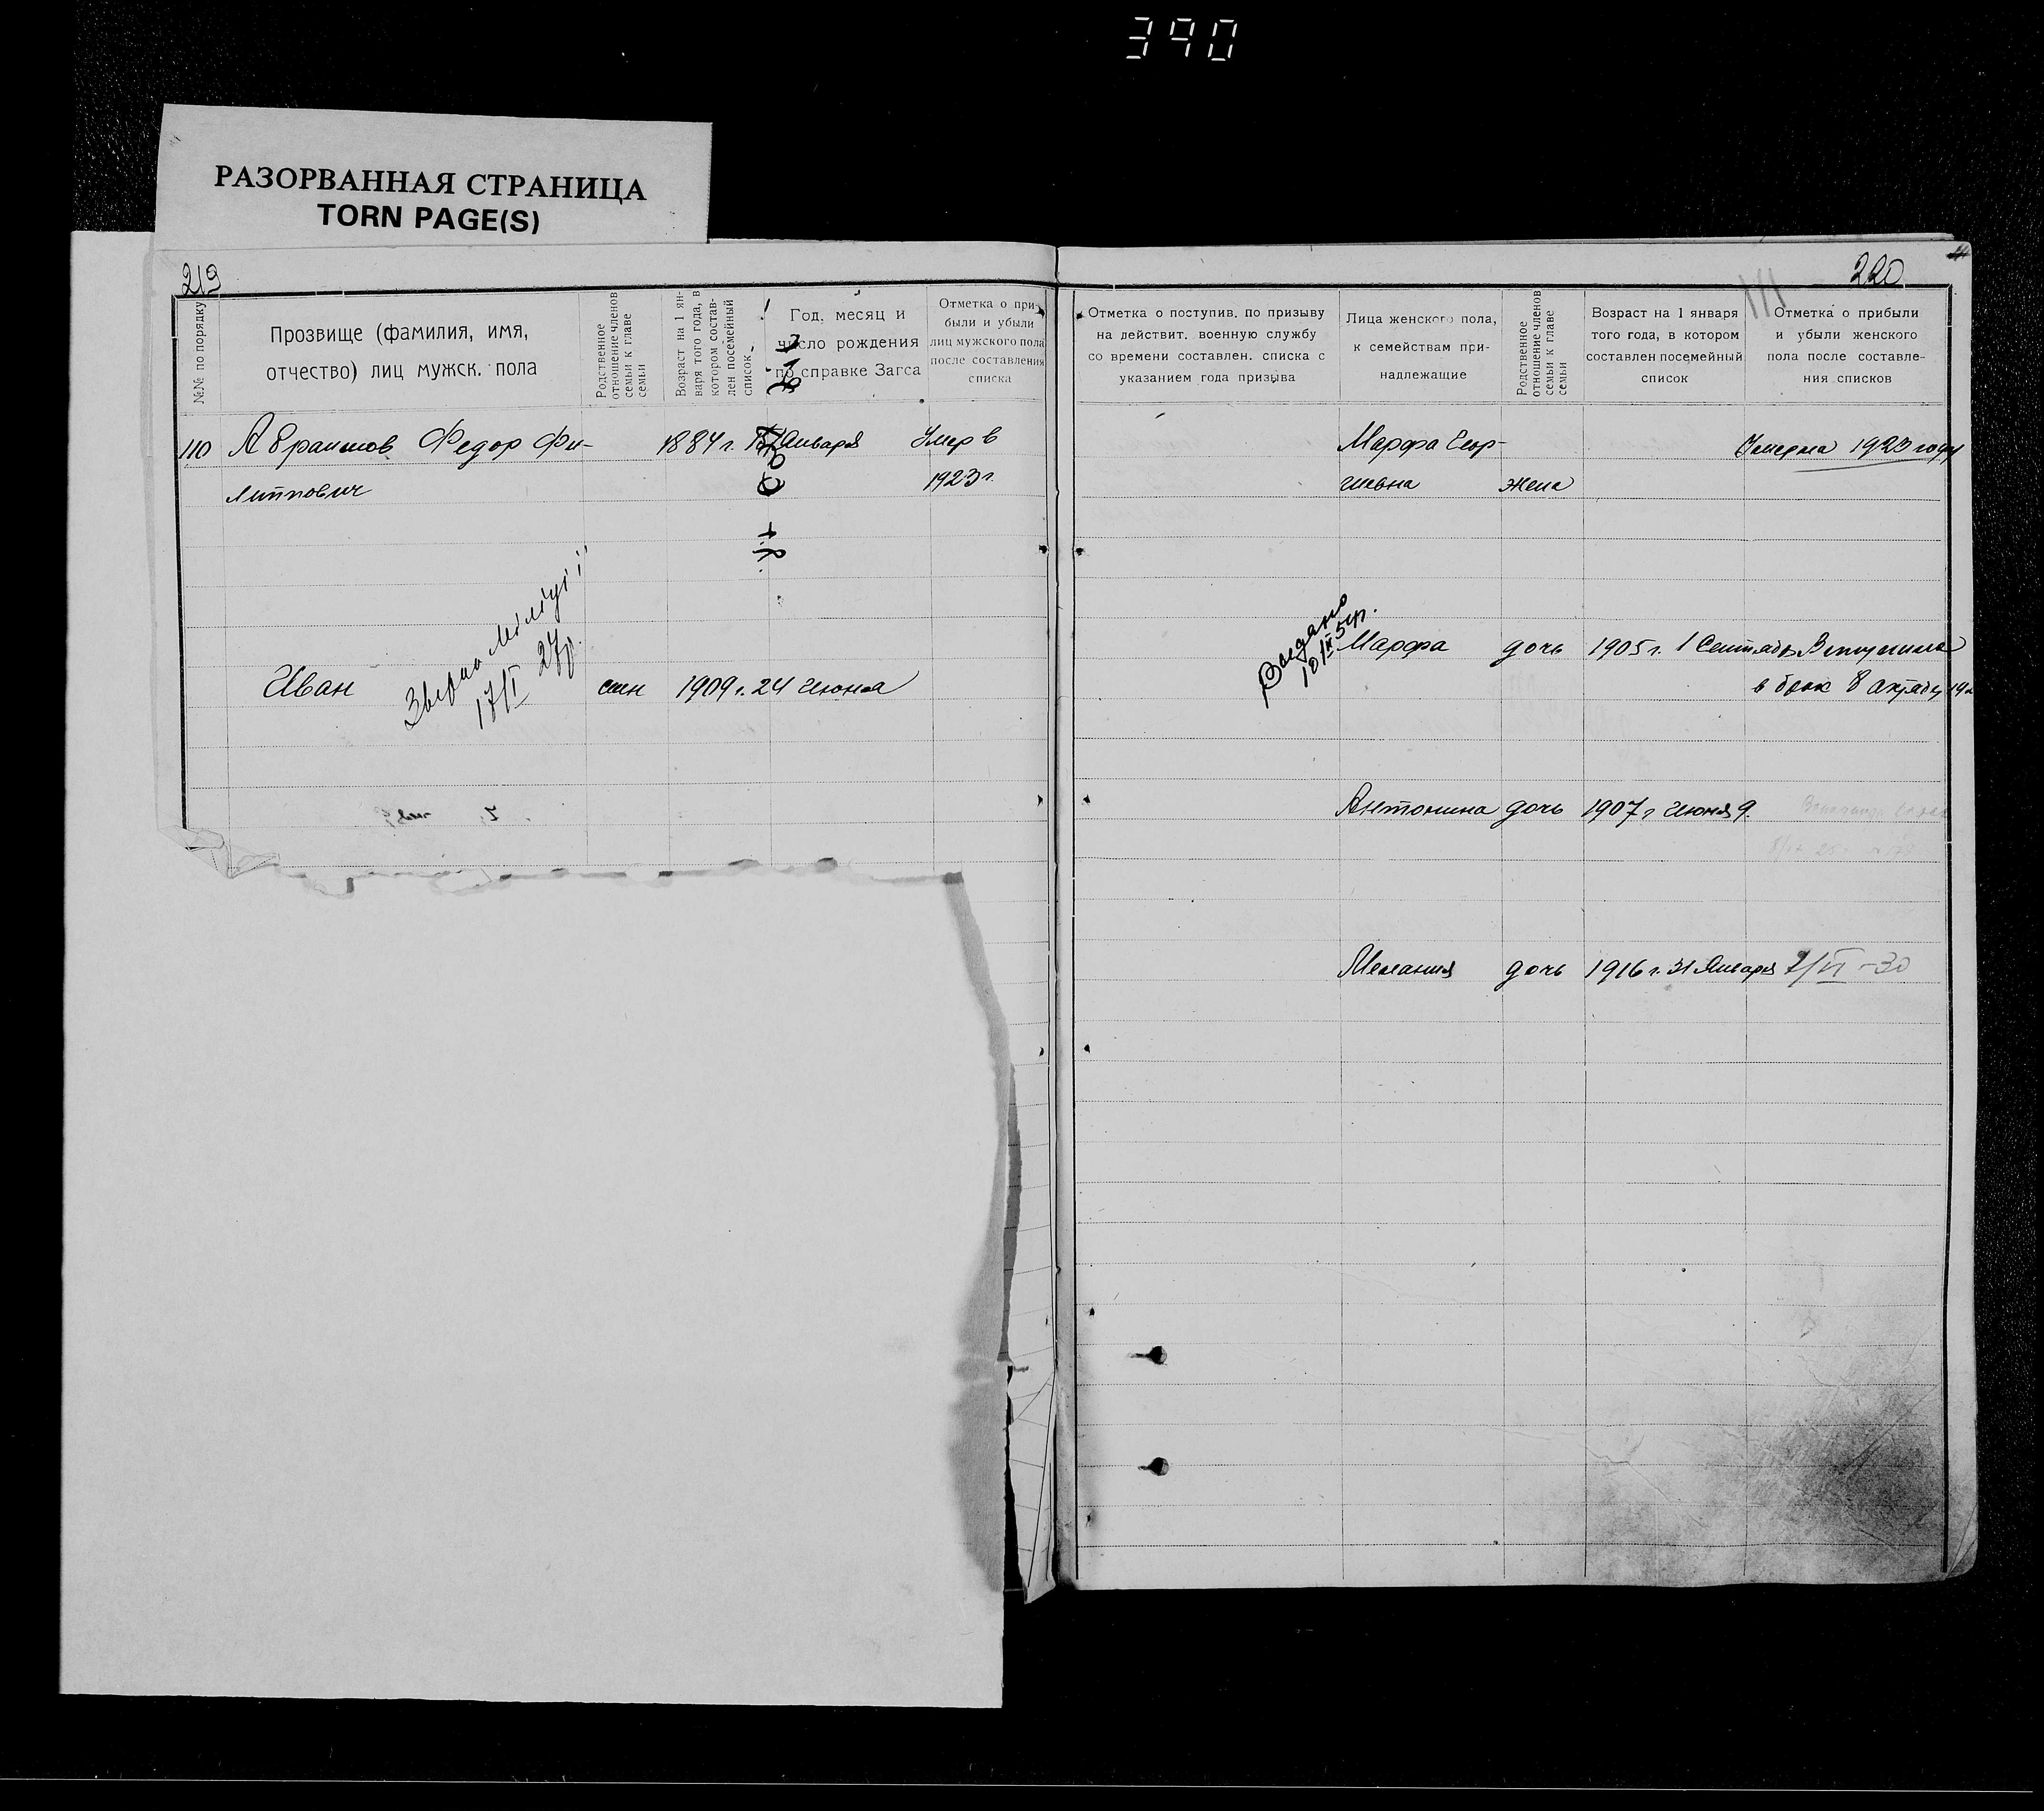 390
РАЗОРВАННАЯ СТРАНИЦА
TORN PAGE(S)
219
№№ по порядку
Прозвище (фамилия, имя,
отчество) лиц мужск. пола
Родственное
отношение членов
семьи к главе
семьи
Возраст на 1 ян-
варя того года, в
котором состав-
лен посемейный
список
Год, месяц и
число рождения
по справке Загса
Отметка о при-
были и убыли
лиц мужского пола
после составления
списка
110 Абрамов Федор Фи- 1884 г. Января Умер в
липпович 1923 г.
Иван сын 1909 г. 24 Июня
17/I 27р.
220
Отметка о поступив. по призыву
на действит. военную службу
со времени составлен. списка с
указанием года призыва
Лица женского пола,
к семействам при-
надлежащие
Родственное
отношение членов
семьи к главе
семьи
Возраст на 1 января
того года, в котором
составлен посемейный
список
Отметка о прибыли
и убыли женского
пола после составле-
ния списков
Марфа Геор- Умерла 1923 году
гиевна жена
Выдано
Марфа дочь 1905 г. 1 Сентяб. Вступила
в брак 8
Антонина дочь 1907 г Июня 9.
Мелания дочь 1916 г. 31 Января 2/VI-30